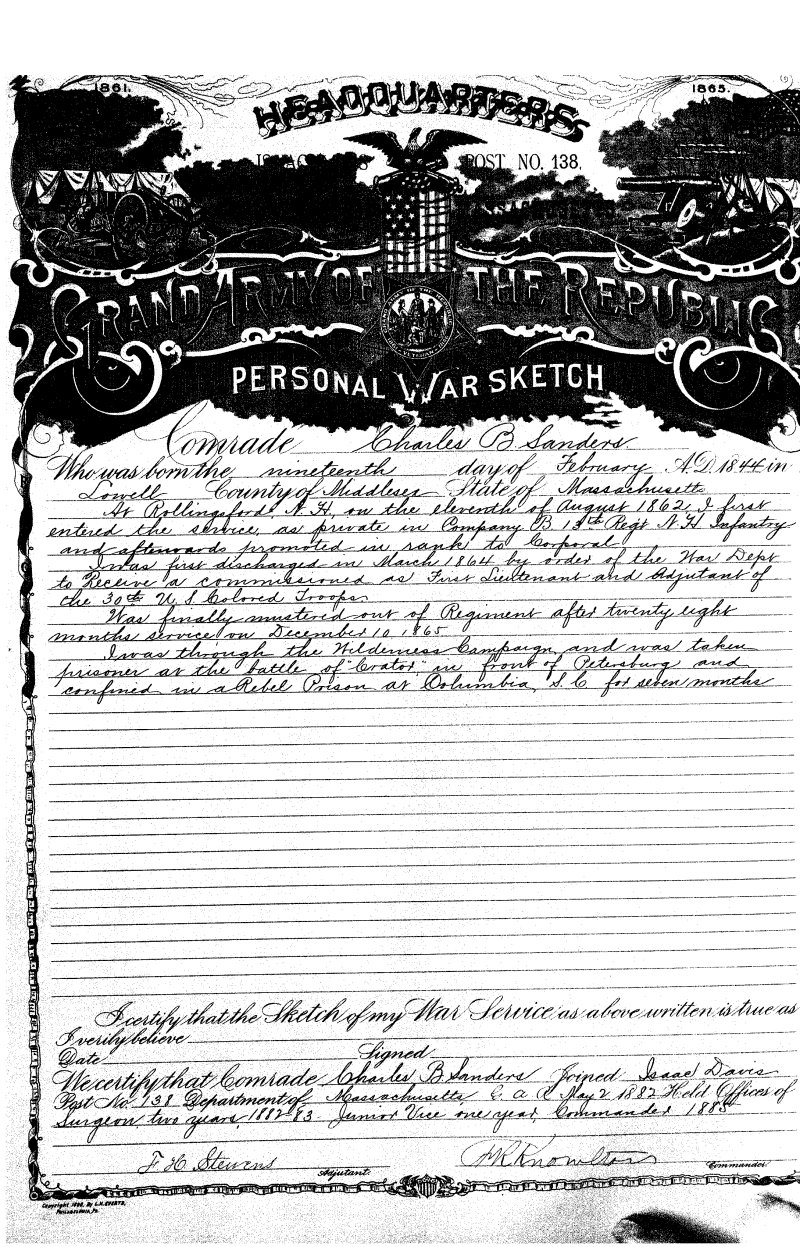 1861. 1865.
HEADQUARTERS
POST NO. 138,
GRAND ARMY OF THE REPUBLIC
PERSONAL WAR SKETCH
Comrade Charles B Sanders
Who was born the nineteenth day of February A.D. 1844 in
Lowell County of Middlesex State of Massachusetts
At Rollingsford, N.H, on the eleventh of August 1862, I first
entered the service, as private in Company B 13th Regt N.H Infantry
and afterwards promoted in rank to Corporal
I was first discharged in March 1864 by order of the War Dept
to Receive a commissioned as First Lieutenant and Adjutant of
the 30th U.S. Colored Troops
Was finally mustered out of Regiment after twenty eight
months service on December 10 1865
I was through the Wilderness Campaign, and was taken
prisoner at the battle of "Crator" in front of Petersburg and
confined in a Rebel Prison at Columbia, S.C. for seven months
I certify that the Sketch of my War Service as above written is true as
I verily believe
Date Signed
We certify that Comrade Charles B. Sanders Joined Isaac Davis
Post No. 138 Department of Massachusetts G. A. R. May 2 1882 Held Offices of
Surgeon two years, 1882-83. Junior Vice one year, Commander 1885
F. H. Stevens Adjutant. Knowlton Commander
Copyright 1890, By L.H. EVERTS,
Philadelphia, Pa.